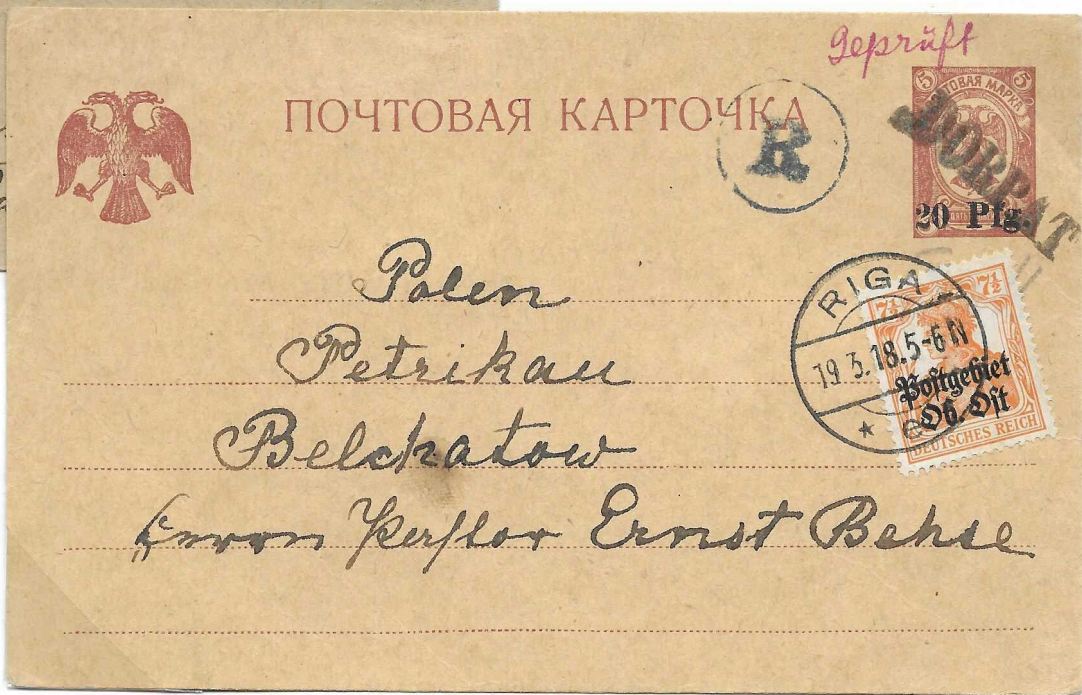 geprüft
ПОЧТОВАЯ КАРТОЧКА
R
5 5
ПОЧТОВАЯ МАРКА
DORPAT
20 Pfg.
RIGA
19.3.18.5-6N
7½ 7½
Postgebiet
Ob. Ost
DEUTSCHES REICH
Polen
Petrikau
Belchatow
Herrn Pastor Ernst Behse